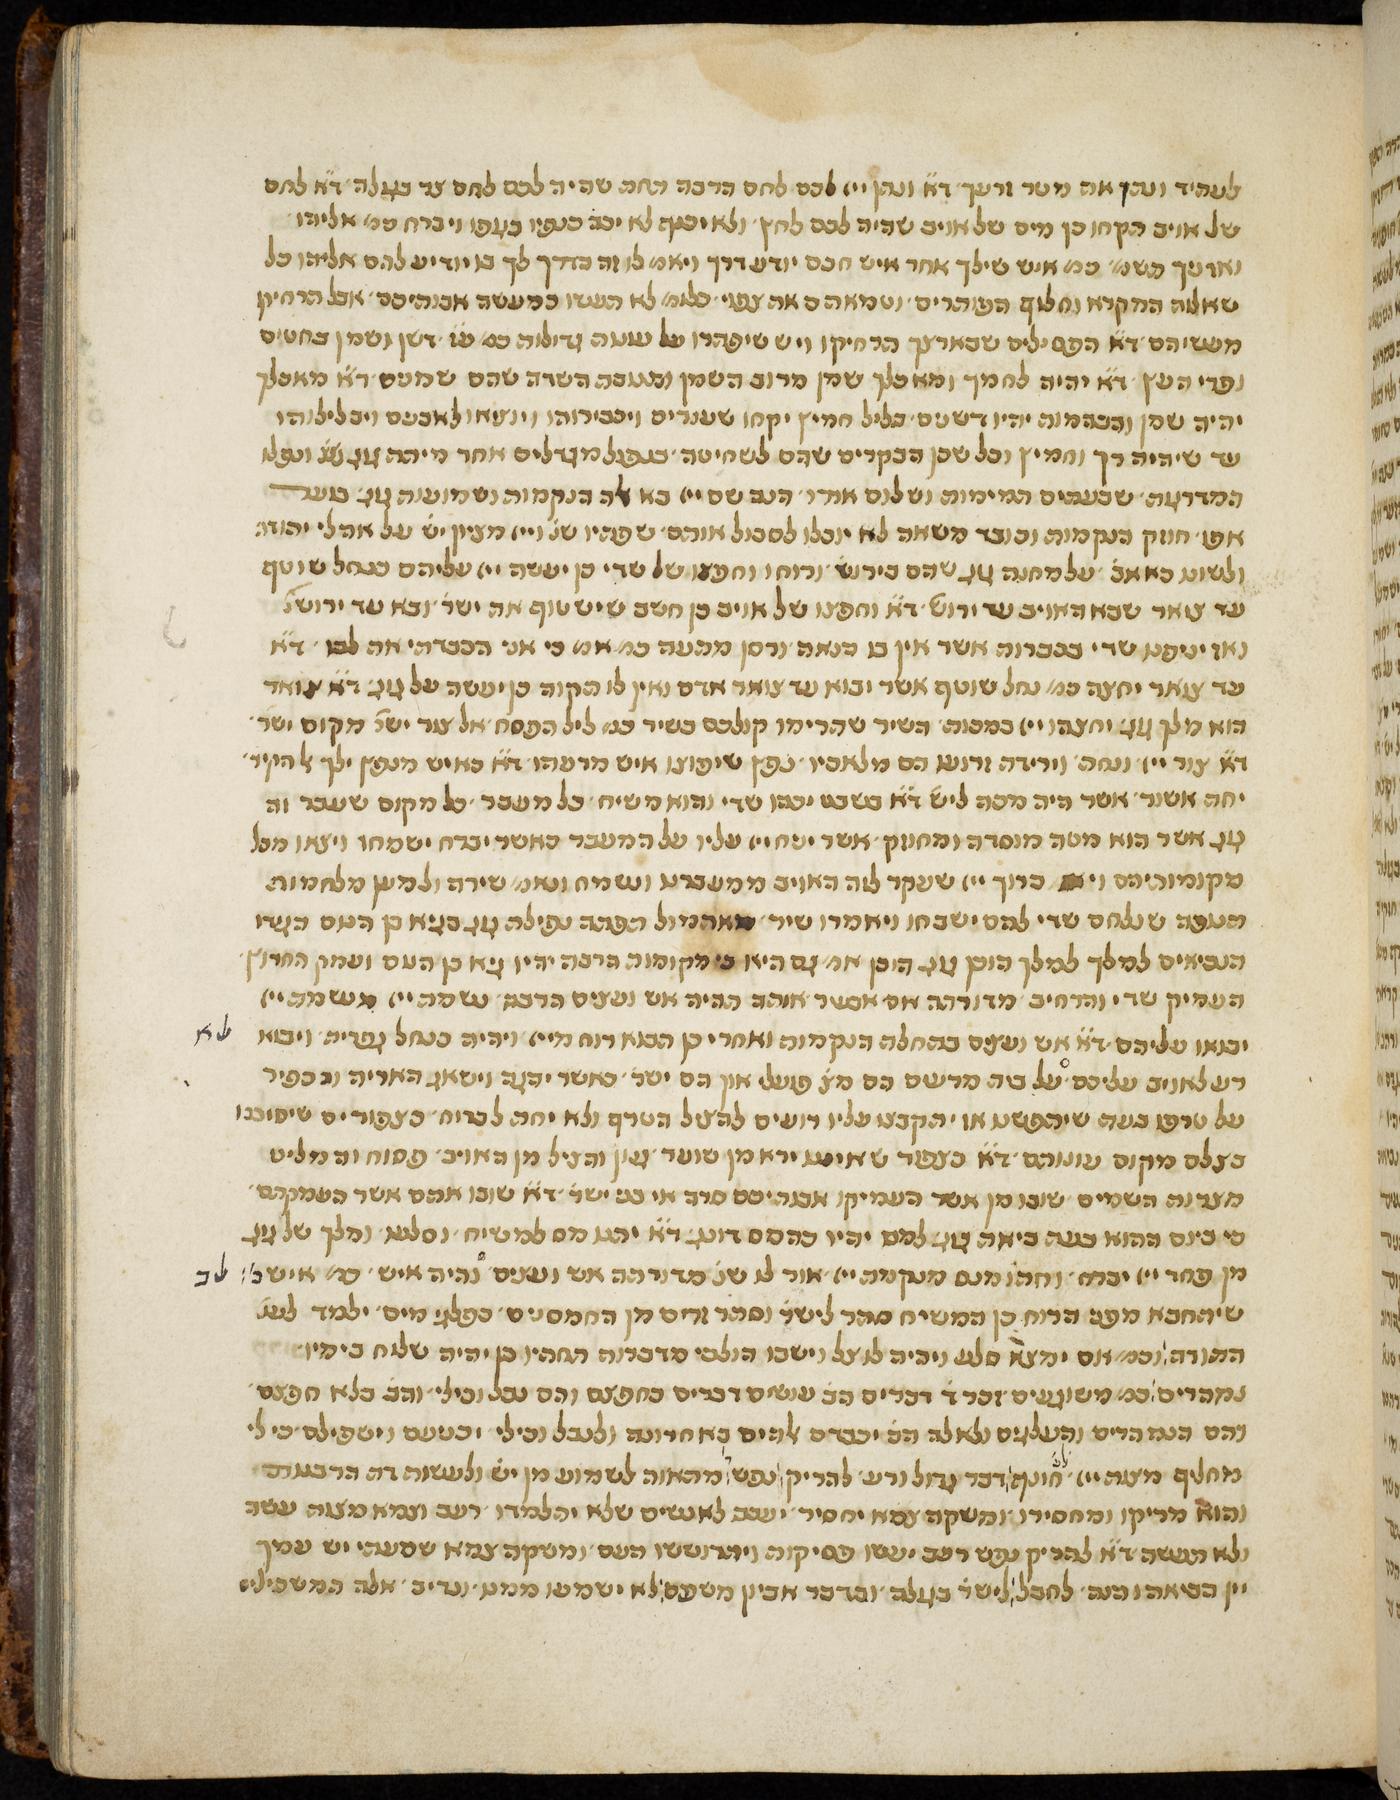 לעתיד ונתן את מטר זרעך ד״א ונתן ייי לכם לחם הרבה תחת שהיה לכם לחם צר בגלה ד״א לחם
של אויב תקחו כן מים של אויב שהיה לכם לחץ ולא יכנף לא יכב כנפיו בעפו ויברח כמ׳ אליהו
ואזניך תשמ׳ כמ׳ איש שילך אחר איש חכם יודע דרך ויאמ׳ לו זה הדרך לך בו יודיע להם אליהו כל
שאלות המקרא וחלוף הסותרים וטמאתם את צפוי כלומ׳ לא תעשו כמעשה אבותיכם אבל תרחיקו
מעשיהם ד״א הפסילים שבארצך תרחיקו ויש שיפתרו על שעה גדולות כמ׳ ש״ז דשן ושמן בחטים
ופרי העץ ד״א יהיה לחמך ומאכלך שמן מרוב השמן ותנובת השדה שהם שמנים ד״א מאכלך
יהיה שמן והבהמות יהיו דשנים בליל חמיץ יקחו שעורים ויכבירוהו ויוציאו לאבעם ויבלילוהו
עד שיהיה רך וחמיץ וכל שכן הבקרים שהם לשחיטה בנפול מגדלים אחר מיתת גוג ונפלו
המדרגות שבעתים התימות ושלום אותו הנה שם ייי בא אלה הנקמות ושמועות גוג בוער
אפו חוזק הנקמות וכובד משאה לא יוכלו לסבול אותם שפתיו שנ׳ וייי מציון יש׳ על אהלי יהודה
ולשונו כאש אכ׳ על מחנה גוג שהם בירוש׳ ורוחו וחפצו של שדי כן יעשה ייי עליהם כנחל שוטף
עד צואר שבא האויב עד ירוש׳ ד״א וחפצו של אויב כן חשב שישטוף את ישר׳ ובא עד ירושל׳
ואז יניפם שדי בכברות אשר אין בו כנאה ורסן מתעה כמ׳ אמ׳ כי אני הכבדתי את לבו ד״א
עד צואר יחצה כמ׳ נחל שוטף אשר יבוא עד צואר אדם ואין לו תקוה כן יעשה על גוג ד״א צואר
הוא מלך גוג יחצהו ייי במכות השיר שתרימו קולכם בשיר כמ׳ ליל הפסח אל צור ישר׳ מקום ישר׳
ד״א צור ייי ונחת וירידת זרועו הם מלאכיו נפץ שיפוצו איש מרעהו ד״א כאיש מנפץ ילך להזיר
יחת אשור אשר היה מכה ליש׳ ד״א בשבט יכהו שדי והוא משיח כל מעבר כל מקום שעבר זה
גוג אשר הוא מטה מוסדה ומחוזק אשר יניח ייי עליו על המעבר כאשר יברח ישמחו ויצאו מכל
מקומותיהם ברוך ייי שעקר לזה האויב ממעברנו ונשמח ונאמ׳ שירה ולמען מלחמות
תנופה שנלחם שדי להם ישבחו ויאמרו שיר מאתמול הפתת נפילת גוג בגיא בן הנם הגידו
הנביאים למלך למלך הוכן גוג הוכן אמ׳ גם היא כי מקומות הרבה יהיו גיא בן הנם ועמק החרוץ
העמיק שדי והרחיב מדורתה אם אפשר אותה תהיה אש ועצים הרבה נשמת ייי
יבואו עליהם ד״א אש ועצים בתחלת הנקמות ואחרי כן תבוא רוח מייי ויהיה כנחל גפרית ויבוא
רע לאויב עליכם על בית מרעים הם מצ׳ פועלי און הם ישר׳ כאשר יהגה וישאג האריה והכפיר
על טרפו בעת שיתפשט או יתקבצו עליו רועים להציל הטרף ולא יחת לברוח כצפורים שיסוככו
בצלם מקום עונותם ד״א כצפור שאיננו ירא מן שועד גנון והציל מן האויב פסוח והמליט
מצדות השמים שובו מן אשר העמיקו אבותיכם סרה אי בני ישר׳ ד״א שובו אתם אשר העמקתם
כי ביום ההוא בעת ביאת גוג למס יהיו כהמס דונג ד״א יתנו מס למשיח וסלעו ומלך של גוג
מן פחד ייי יברח וחתו מנס מנקמת ייי אור לו שנ׳ מדורתה אש ועצים והיה איש כמ׳ איש
שיתחבא מפני הרוח כן המשיח סתר לישר׳ וסתר זרים מן החמסנים כפלגי מים ילמד לעו׳
התורה וכמ׳ אם ימצא סלע ויהיה לו צל וישבו הולכי מדברות תחתיו כן יהיה שלוח בימיו
נמהרים כמ׳ משוגעים זכר ד׳ דברים הב׳ עושים דברים כחפצם והם נבל וכילי והב׳ בלא חפצם
והם הנמהרים והעלגים ולאלה הב׳ יכבדם אלהים באחרונה ולנבל וכילי יכניעם וישפילם כי לי
מחליף מצות ייי חונף דבר גדול ורע להריק נפש מתאוה לשמוע מן יש׳ ולעשות דת הרבנות
והוא מריקו ומחסירו ומשקה צמא יחסיר יענה לאנשים שלא יתלמדו רעב וצמא מצות עשה
ולא תעשה ד״א להריק נפש רעב יעשו פסיקות ויתרוששו העם ומשקה צמא שמעתי יש עמך
יין הביאהו הנה לחבל לישר׳ בגלה ובדבר אביון משעם לא ישמעו ממנו ונדיב אלה המשכילים
לא
לב